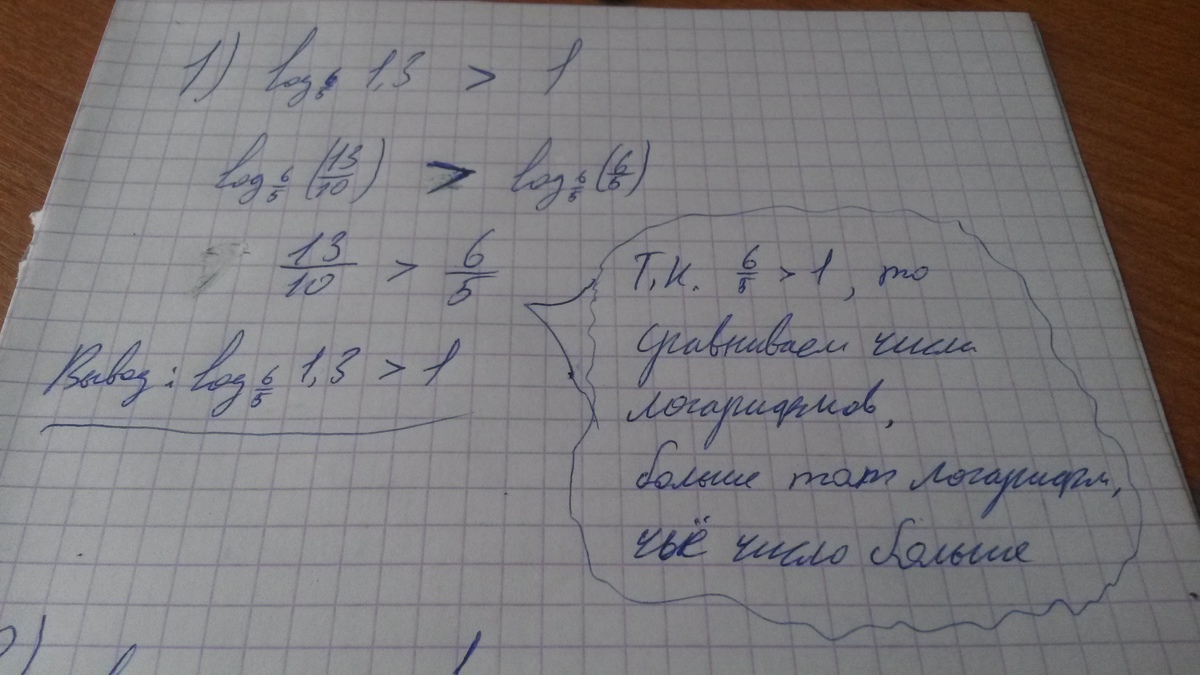 1) log_{6/5} 1,3 > 1
log_{6/5} (13/10) > log_{6/5} (6/5)
13/10 > 6/5
Вывод: log_{6/5} 1,3 > 1
Т.к. 6/5 > 1, то
сравниваем числа
логарифмов,
больше тот логарифм,
чьё число больше